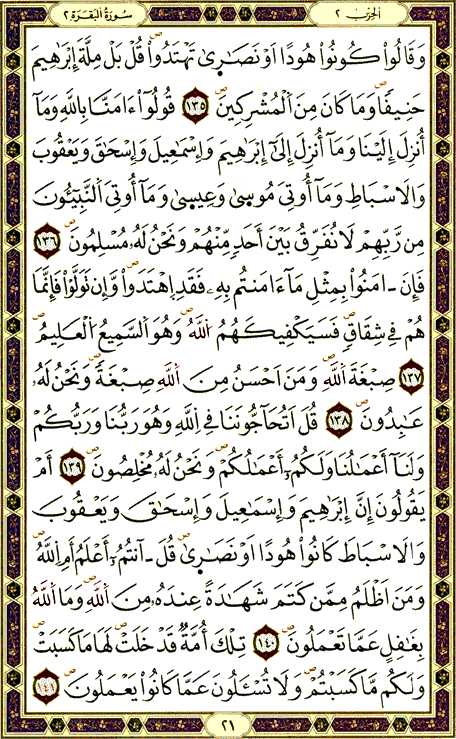 الحزب ٢
سورة البقرة ٢
وَقَالُوا۟ كُونُوا۟ هُودًا اَوْ نَصَٰرِىٰ تَهْتَدُوا۟ۖ قُلْ بَلْ مِلَّةَ إِبْرَٰهِيمَ
حَنِيفًاۖ وَمَا كَانَ مِنَ اَ۬لْمُشْرِكِينَۖ ١٣٥ قُولُوٓا۟ ءَامَنَّا بِاللَّهِ وَمَآ
أُنزِلَ إِلَيْنَا وَمَآ أُنزِلَ إِلَىٰٓ إِبْرَٰهِيمَ وَإِسْمَٰعِيلَ وَإِسْحَٰقَ وَيَعْقُوبَ
وَالَاسْبَاطِ وَمَآ أُوتِيَ مُوسۭيٰ وَعِيسۭيٰ وَمَآ أُوتِيَ اَ۬لنَّبِيٓـُٔونَ
مِن رَّبِّهِمْ لَا نُفَرِّقُ بَيْنَ أَحَدٍ مِّنْهُمْ وَنَحْنُ لَهُۥ مُسْلِمُونَۖ ١٣٦
فَإِنَ اٰمَنُوا۟ بِمِثْلِ مَآ ءَامَنتُم بِهِۦ فَقَدِ اِ۪هْتَدَوا۟ۖ وَّإِن تَوَلَّوْا۟ فَإِنَّمَا
هُمْ فِي شِقَاقٍۖ فَسَيَكْفِيكَهُمُ اُ۬للَّهُۖ وَهُوَ اَ۬لسَّمِيعُ اُ۬لْعَلِيمُۖ
١٣٧ صِبْغَةَ اَ۬للَّهِۖ وَمَنَ اَحْسَنُ مِنَ اَ۬للَّهِ صِبْغَةًۖ وَنَحْنُ لَهُۥ
عَٰبِدُونَۖ ١٣٨ قُلَ اَتُحَآجُّونَنَا فِي اِ۬للَّهِ وَهُوَ رَبُّنَا وَرَبُّكُمْ
وَلَنَآ أَعْمَٰلُنَا وَلَكُمُۥٓ أَعْمَٰلُكُمْ وَنَحْنُ لَهُۥ مُخْلِصُونَۖ ١٣٩ أَمْ
يَقُولُونَ إِنَّ إِبْرَٰهِيمَ وَإِسْمَٰعِيلَ وَإِسْحَٰقَ وَيَعْقُوبَ
وَالَاسْبَاطَ كَانُوا۟ هُودًا اَوْ نَصَٰرِىٰۖ قُلَ ـآنتُمُۥٓ أَعْلَمُ أَمِ اِ۬للَّهُۖ
وَمَنَ اَظْلَمُ مِمَّن كَتَمَ شَهَٰدَةً عِندَهُۥ مِنَ اَ۬للَّهِۖ وَمَا اَ۬للَّهُ
بِغَٰفِلٍ عَمَّا تَعْمَلُونَۖ ١٤٠ تِلْكَ أُمَّةٌ قَدْ خَلَتْۖ لَهَا مَا كَسَبَتْ
وَلَكُم مَّا كَسَبْتُمْۖ وَلَا تُسْـَٔلُونَ عَمَّا كَانُوا۟ يَعْمَلُونَۖ ١٤١
٢١